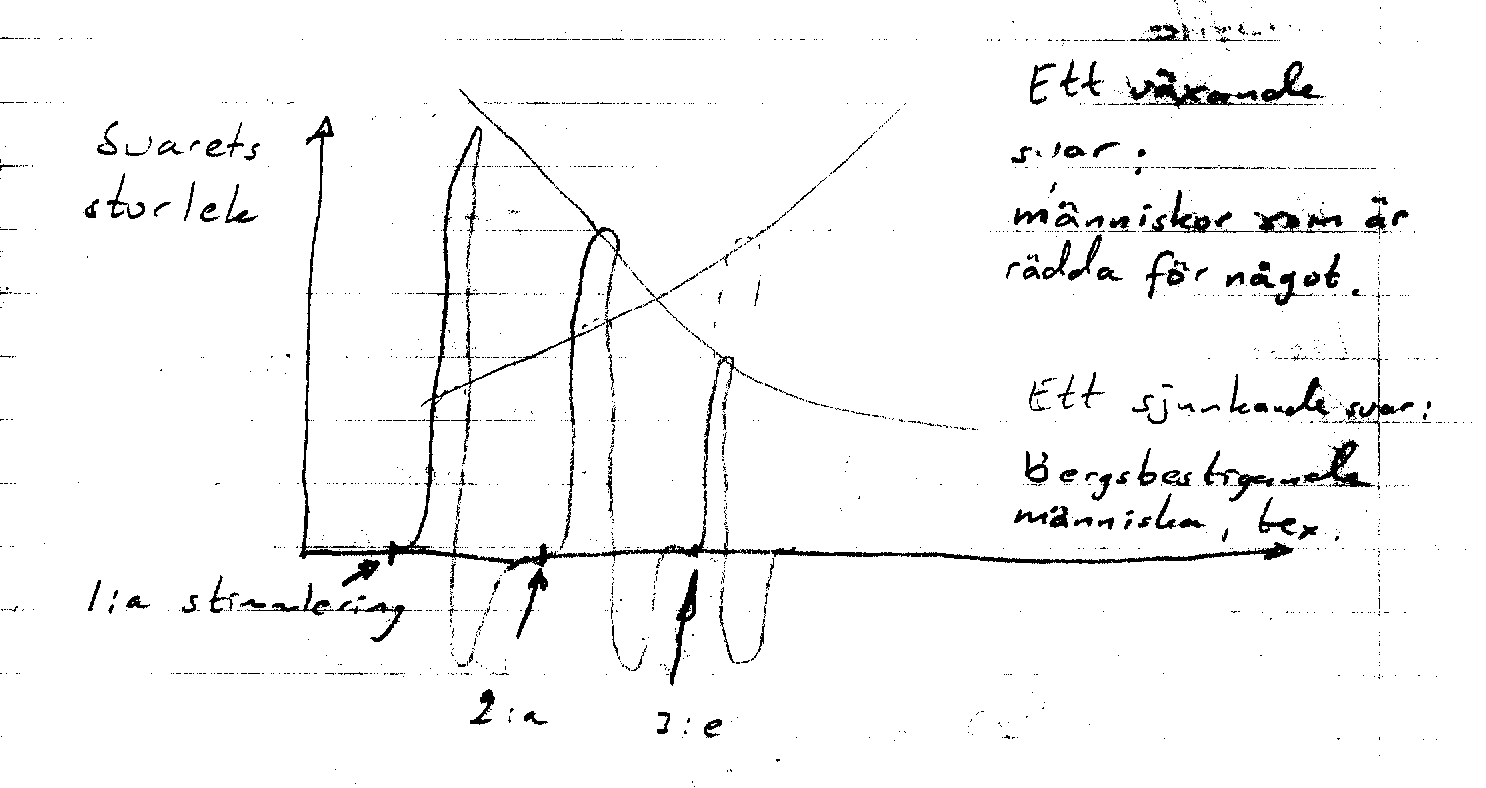 Svarets
storlek
1:a stimulering
2:a
3:e
Ett växande
svar:
människor som är
rädda för något.
Ett sjunkande svar:
Bergsbestigande
människa, tex.